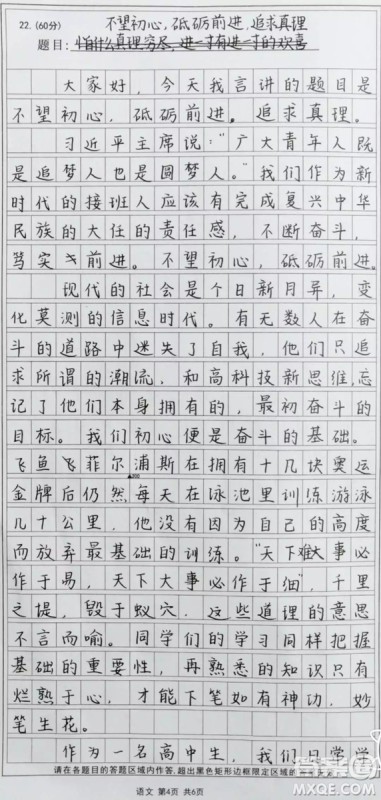 22.(60分)
不望初心,砥砺前进,追求真理
题目:怕什么真理穷尽,进一寸有进一寸的欢喜
大家好,今天我言讲的题目是
不望初心,砥砺前进。追求真理。
习近平主席说:“广大青年人既
是追梦人也是圆梦人。”我们作为新
时代的接班人应该有完成复兴中华
民族的大任的责任感,不断奋斗,
笃实前进。不望初心,砥砺前进。
现代的社会是个日新月异,变
化莫测的信息时代。有无数人在奋
斗的道路中迷失了自我,他们只追
求所谓的潮流,和高科技新思维,忘
记了他们本身拥有的,最初奋斗的
目标。我们初心便是奋斗的基础。
飞鱼飞菲尔浦斯在拥有十几块奥运
金牌后仍然每天在泳池里训练游泳
几十公里,他没有因为自己的高度
而放弃最基础的训练。“天下难大事必
作于易,天下大事必作于细”,千里
之提,毁于蚁穴,这些道理的意思
不言而喻。同学们的学习同样把握
基础的重要性,再熟悉的知识只有
烂熟于心,才能下笔如有神功,妙
笔生花。
作为一名高中生,我们日常学
请在各题目的答题区域内作答,超出黑色矩形边框限定区域的
语文 第4页 共6页
MXQE.COM